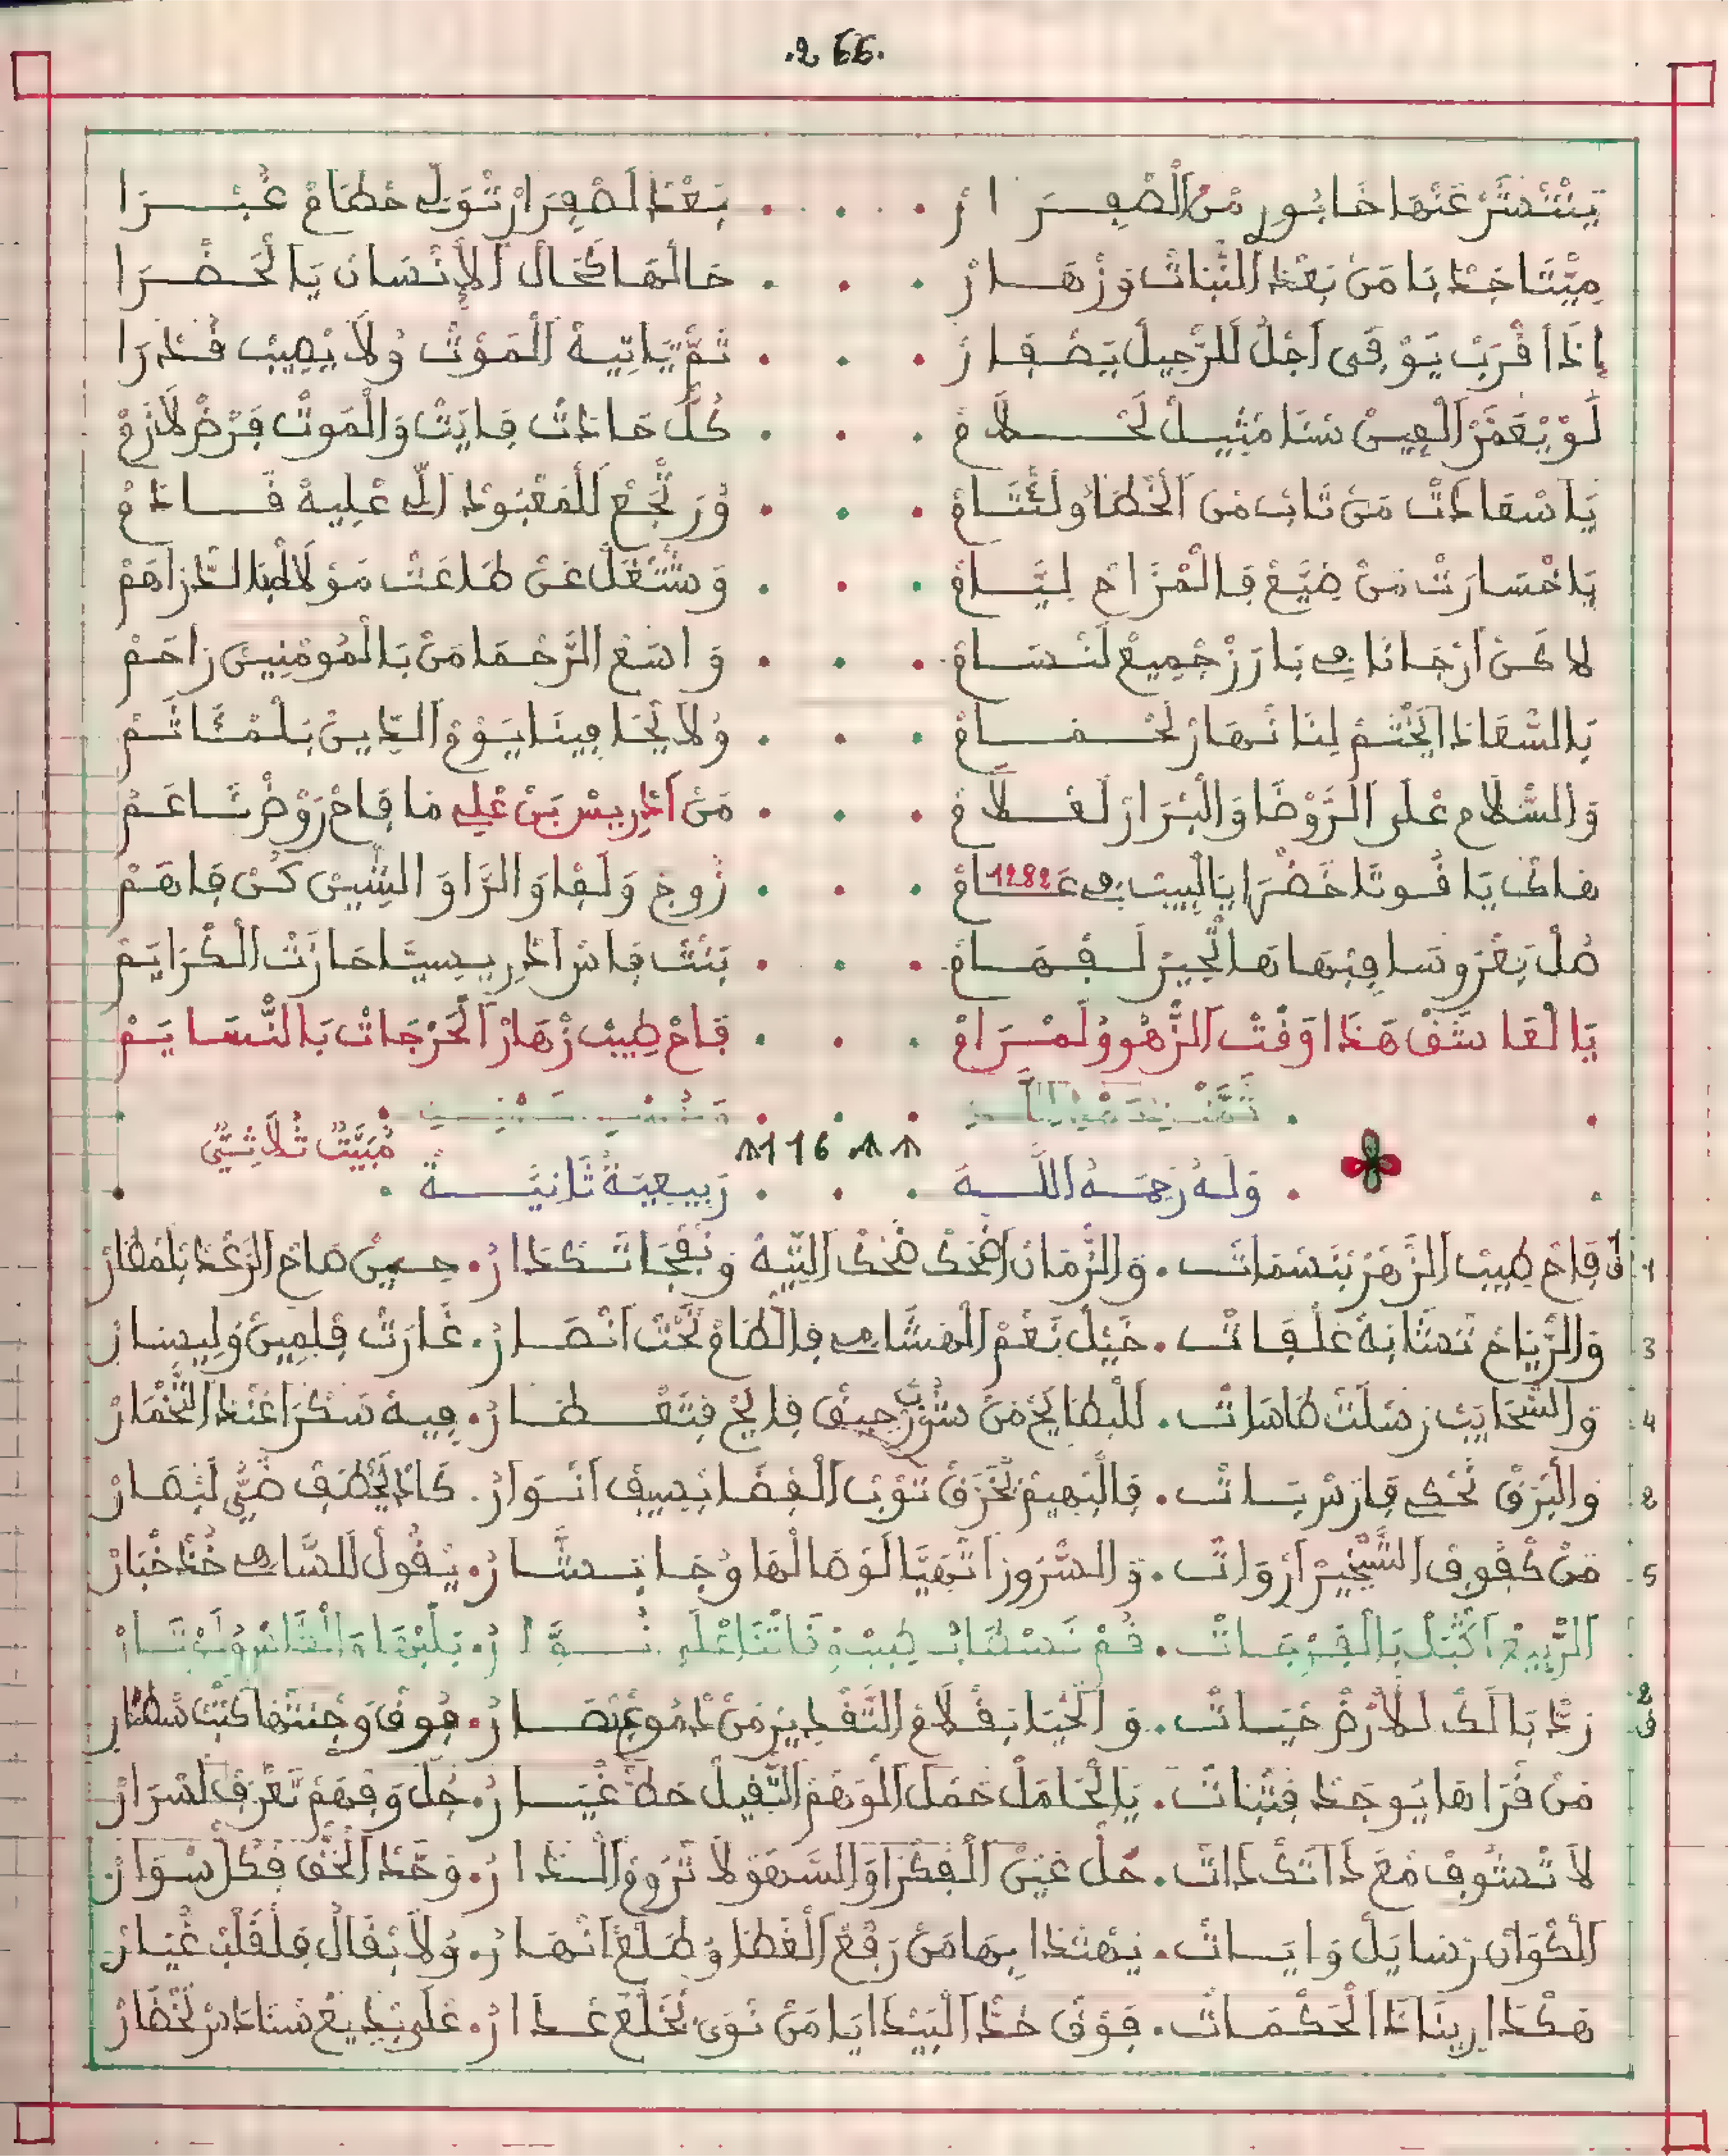 .266.
يَنْتَسْتَرْ عَنْهَا خَابُورِ مْنْ الصْفِرَارْ . . . بَعْدْ لَصْفِرَارْ تْوَلِّي حْطَامْ غُبْرَا
مِيّْتَا جَدْبَا مَنْ بَعْدْ النّْبَاتْ وَزْهَارْ . . . حَالْهَا كَحَالْ الإِنْسَانْ يَا لْحَضْرَا
إِذَا قْرَبْ يَوْفَى اجَلُ للرّْحِيلْ يَصْفَارْ . . . ثمَّ يَاتِيهْ الْمَوْتْ وُلاَ يْصِيبْ قُدْرَا
لَوْ يْعَمَّرْ الْعِينْ سْنَا مْثِيلْ لَحْلاَمْ . . . كُلّْ حَادَتْ فَايَتْ وَالْمَوتْ فَرْضْ لاَزَمْ
يَا سْعَادَتْ مَنْ تَابْ مَنْ الْخْطَا وَلَثَامْ . . . وْرَجَعْ لَلْمَعْبُودْ الِّي عْلِيهْ قَادَمْ
يَا خْسَارَتْ مَنْ ضِيَّعْ فَالْمْزَاحْ لِيَّامْ . . . وَشْتْغَلْ عَنْ طَاعَتْ مَوْلاَهْ بَالدّْرَاهَمْ
لاَكَنْ ارْجَانَا فِي بَارَزْ جْمِيعْ لَنْسَامْ . . . وَاسَعْ الرَّحْمَا مَنْ بَالْمُومْنِينْ رَاحَمْ
بَالسّْعَادَا يَخْتَمْ لِنَا نْهَارْ لَخْتَامْ . . . وُلاَ يْخَافِينَا يَوْمْ الدِّينْ بَلْمْتَاتَمْ
وَالسّْلاَمْ عْلَى الرَّوْضَا وَالْبْرَارْ لَعْلاَمْ . . . مَنْ ادْرِيسْ بَنْ عْلِي مَا فَاحْ رَوْضْ نَاعَمْ
هَاكْ يَا قُوتَا خَضْرَا يَا لْبِيبْ فِي عَامْ 1282 . . . زُوجْ وَلَفَا وَالرَّا وَالشِّينْ كُنْ فَاهَمْ
صُلْ بَعْرُوسَا فِبْهَاهَا تْحِيرْ لَفْهَامْ . . . بَنْتْ فَاسْ ادْرِيسِيَّا حَازَتْ الْكْرَايَمْ
يَا لْعَاشَقْ هَذَا وَقْتْ الزّْهُو وُلَمْرَامْ . . . فَاحْ طِيبْ زْهَارْ الْحَرْجَاتْ بَالنّْسَايَمْ
116 مُبَيَّتْ ثُلاَثِيّ
وَلَهُ رَحِمَهُ اللَّهَ . . . رَبِيعِيَةْ ثَانِيَّةْ
1 ق فَاحْ طِيبْ الزّْهَرْ بَنَسْمَاتْ . وَالزّْمَانْ اضْحَكْ ضَحْكْ التِّيهْ وَنْفْجَاتْ كْدَارُ . حِينْ صَاحْ الرَّعْدْ بَلمْطَارْ
3 وَالرّْيَاحْ تَسْتَابَهْ غَلْفَاتْ . خَيْلْ بَعْمْ الْمْشَامِي فَالْطَامْ تَحْتْ انْصَارُ . غَارَتْ فِلِمِينْ وَلِيسَارْ
4 وَالسّْحَايَبْ رَسْلَتْ طَاسَاتْ . لَلْبْطَايَحْ مَنْ شُرْبْ رْحِيقْ فَايَحْ فِتَعْطَارُ . فِيهْ سَكْرَا عَنْدْ التّْخْمَارْ
2 وَالْبَرْقْ تَحْكِي فَارَسْ بَاتْ . فَالْبْهِيمْ يْخَرَّقْ تَوْبْ الْفْضَا بَسِيفْ انْوَارُ . كَادْ يَخْطَفْ ضَيّْ لَبْصَارْ
5 مَنْ كْفُوفْ الشّْجِيرْ ارْوَاتْ . وَالسّْرُورْ اتْهَيَّا لَوْصَالْهَا وُجَا بَشَّارُ . يْقُولْ لَلسَّاهِي خُدْ خْبَارْ
الرّْبِيعْ اقْبَلْ بَالْفَرْجَاتْ . قُمْ نَسْطَابْ طِيبْ وَقَاتْنَا عْلَى نُوَّارُ . بَلْبْهَا وَالْكَاسْ وُلَوْتَارْ
2 ق زَدْ بَالَكْ لَلاَرْضْ حْيَاتْ . وَالْحْيَا بَقْلاَمْ التَّقْدِيرْ مَنْ دْمُوعْ بْصَارُ . فُوقْ وَجْنَتْهَا كْتَبْ سْطَارْ
مَنْ قْرَاهَا يُوجَدْ فِتْبَاتْ . يَا لْحَامَلْ حَمْلْ الْوَهْمْ التّْقِيلْ حَطّْ غْيَارُ . جُلْ وَفْهَمْ تَعْرَفْ لَسْرَارْ
لاَ تْشُوفْ مْعَ ذَاتَكْ ذَاتْ . حُلّْ عَيْنْ الْفِكْرَا وَالسَّهْو لاَ تْرُومْ الدَارُ . وَحَّدْ الْحَقّْ فَكُلّْ سْوَارْ
الْكْوَانْ رْسَايَلْ وَايَاتْ . يَهْتْدَا بِهَا مَنْ رَفْعْ الْغْطَا وُطْلَعْ انْهَارُ . وُلاَ بْقَالُ فَلْقَلْبْ غْيَارْ
هَكْدَا رِينَا دَا الْحَكْمَاتْ . فَوْقْ خَدّْ الْبَيْدَا يَا مَنْ نْوَى يَخْلَعْ عْدَارُ . عْلَى بْدِيعْ سْنَادَسْ لَخْضَارْ